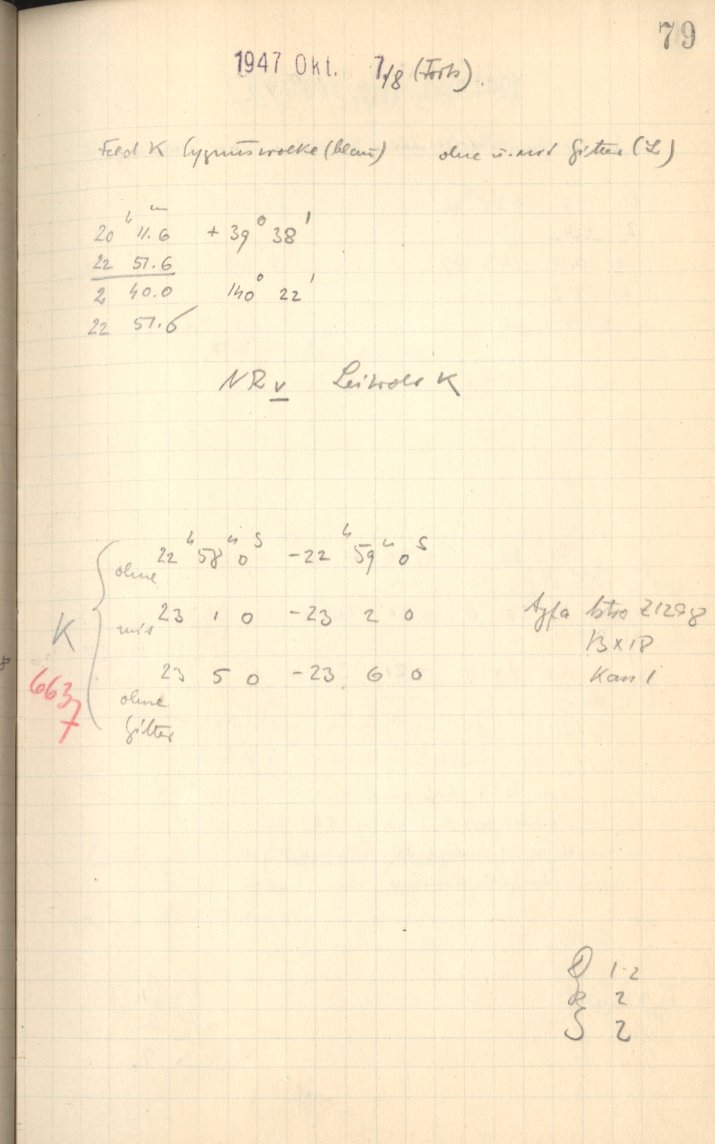 79
1947 Okt. 7/8 (Forts).
Feld K Cygnuswolke (blau) ohne u. mit Gitter (L)
20 h 11.6 m + 39° 38'
22 51.6
2 40.0 140° 22'
22 51.6
NR v K
ohne 22 h 58 m 0 s - 22 h 59 m 0 s
mit 23 1 0 - 23 2 0 Agfa Astro Z1298
K 13 x 18
23 5 0 - 23 6 0 Kass 1
ohne
Gitter
6637
D 1-2
R 2
S 2